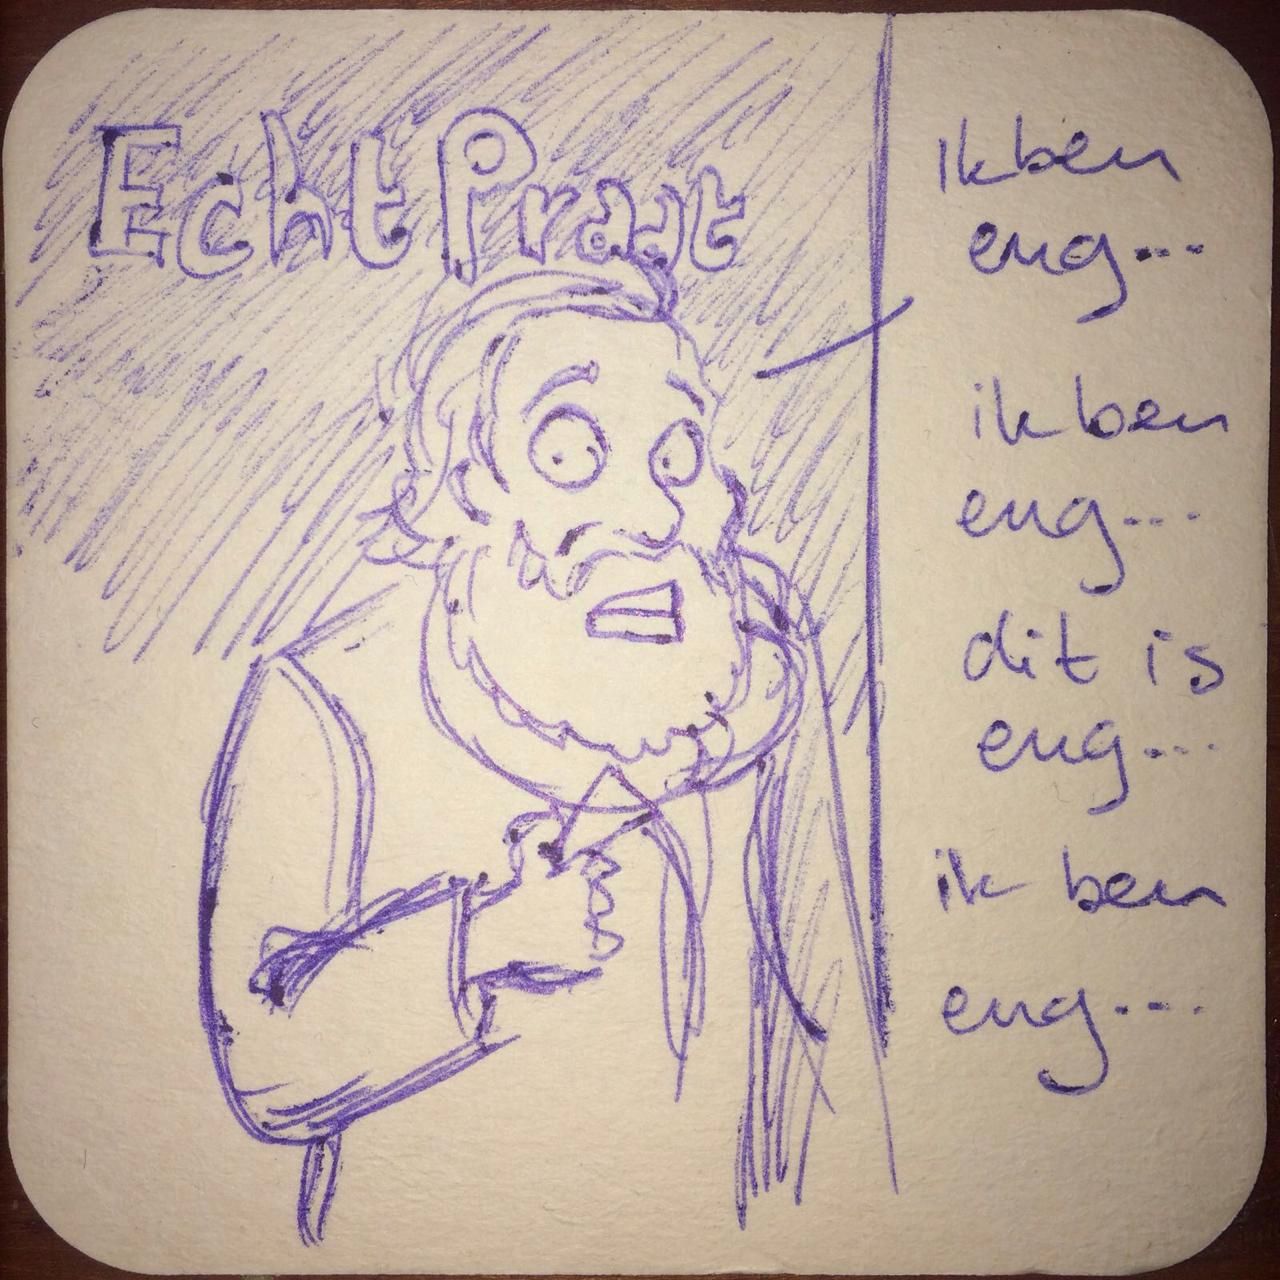 Echt Praat
ik ben
eng...
ik ben
eng...
dit is
eng...
ik ben
eng...